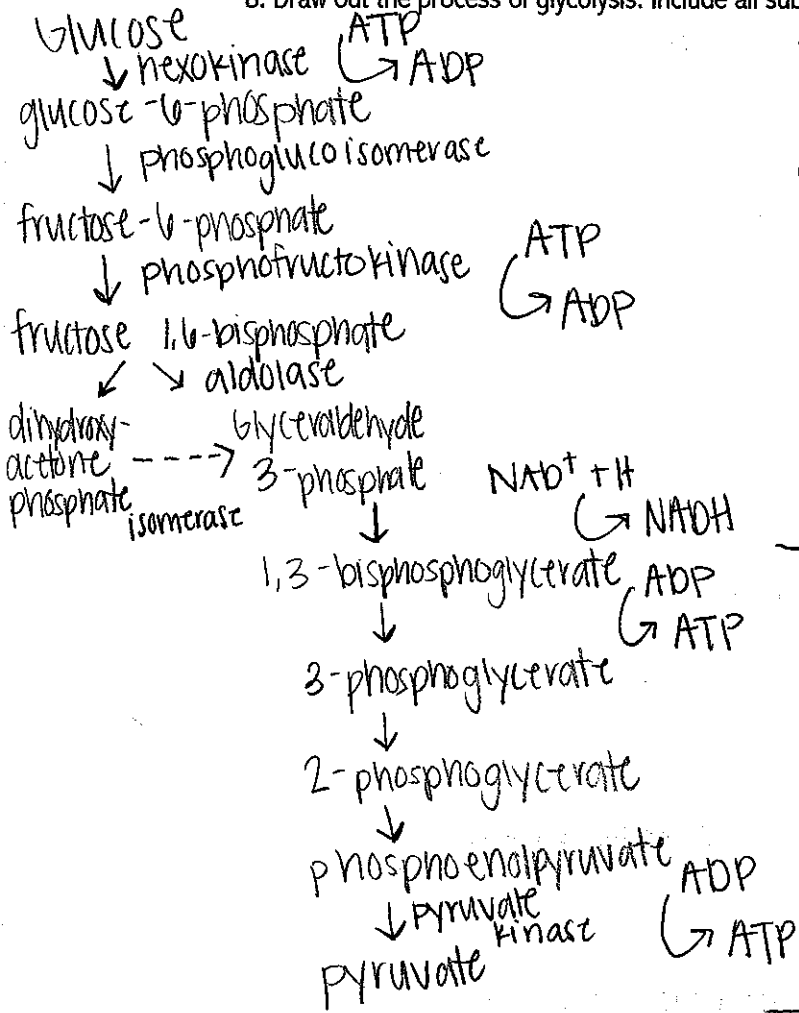 8. Draw out the process of glycolysis. Include all sub
Glucose ATP
↓ hexokinase → ADP
glucose-6-phosphate
↓ phosphoglucoisomerase
fructose-6-phosphate
↓ phosphofructokinase ATP
→ ADP
fructose 1,6-bisphosphate
↙ ↘ aldolase
dihydroxy-
acetone
phosphate
---->
isomerase
Glyceraldehyde
3-phosphate
↓ NAD⁺ + H
→ NADH
1,3-bisphosphoglycerate ADP
↓ → ATP
3-phosphoglycerate
↓
2-phosphoglycerate
↓
phosphoenolpyruvate ADP
↓ pyruvate
kinase → ATP
pyruvate